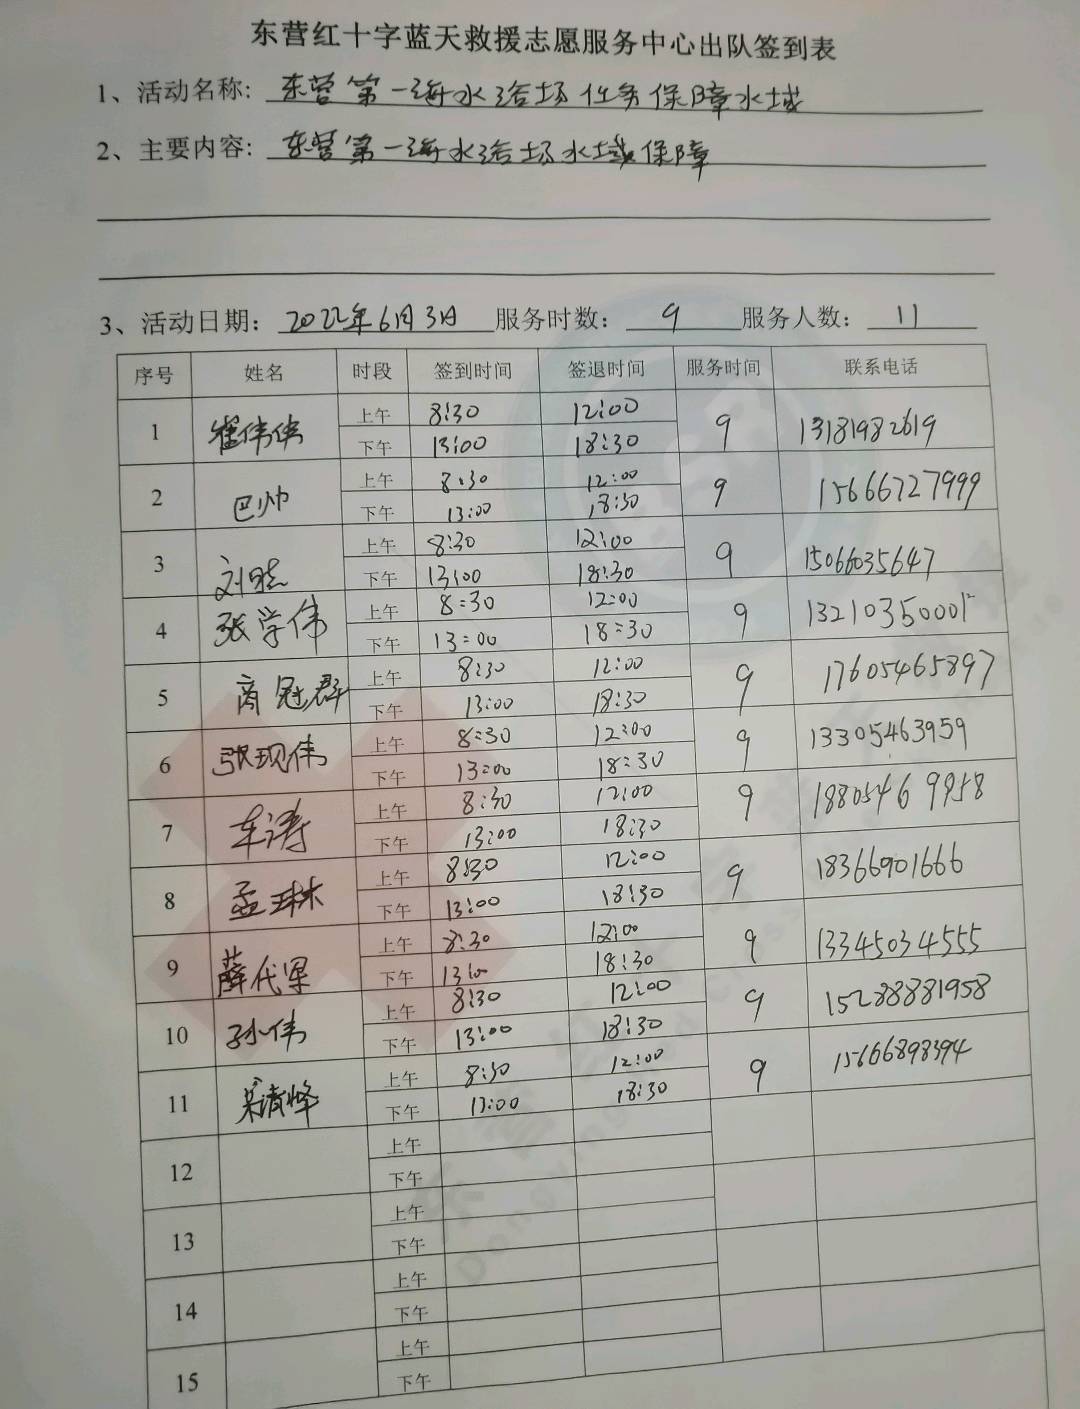 东营红十字蓝天救援志愿服务中心出队签到表
1、活动名称: 东营第一海水浴场任务保障水域
2、主要内容: 东营第一海水浴场水域保障
3、活动日期: 2022年6月3日 服务时数: 9 服务人数: 11
序号 姓名 时段 签到时间 签退时间 服务时间 联系电话
1 崔伟伟 上午 8:30 12:00 9 13181982619
下午 13:00 18:30
2 巴帅 上午 8:30 12:00 9 15666727999
下午 13:00 18:30
3 刘晓 上午 8:30 12:00 9 15066035647
下午 13:00 18:30
4 张学伟 上午 8:30 12:00 9 13210350001
下午 13:00 18:30
5 商冠群 上午 8:30 12:00 9 17605465897
下午 13:00 18:30
6 张现伟 上午 8:30 12:00 9 13305463959
下午 13:00 18:30
7 车涛 上午 8:30 12:00 9 18805469958
下午 13:00 18:30
8 孟琳 上午 8:30 12:00 9 18366901666
下午 13:00 18:30
9 薛代军 上午 8:30 12:00 9 13345034555
下午 13:00 18:30
10 孙伟 上午 8:30 12:00 9 15288881958
下午 13:00 18:30
11 清峰 上午 8:30 12:00 9 15666898394
下午 13:00 18:30
12 上午
下午
13 上午
下午
14 上午
下午
15 上午
下午